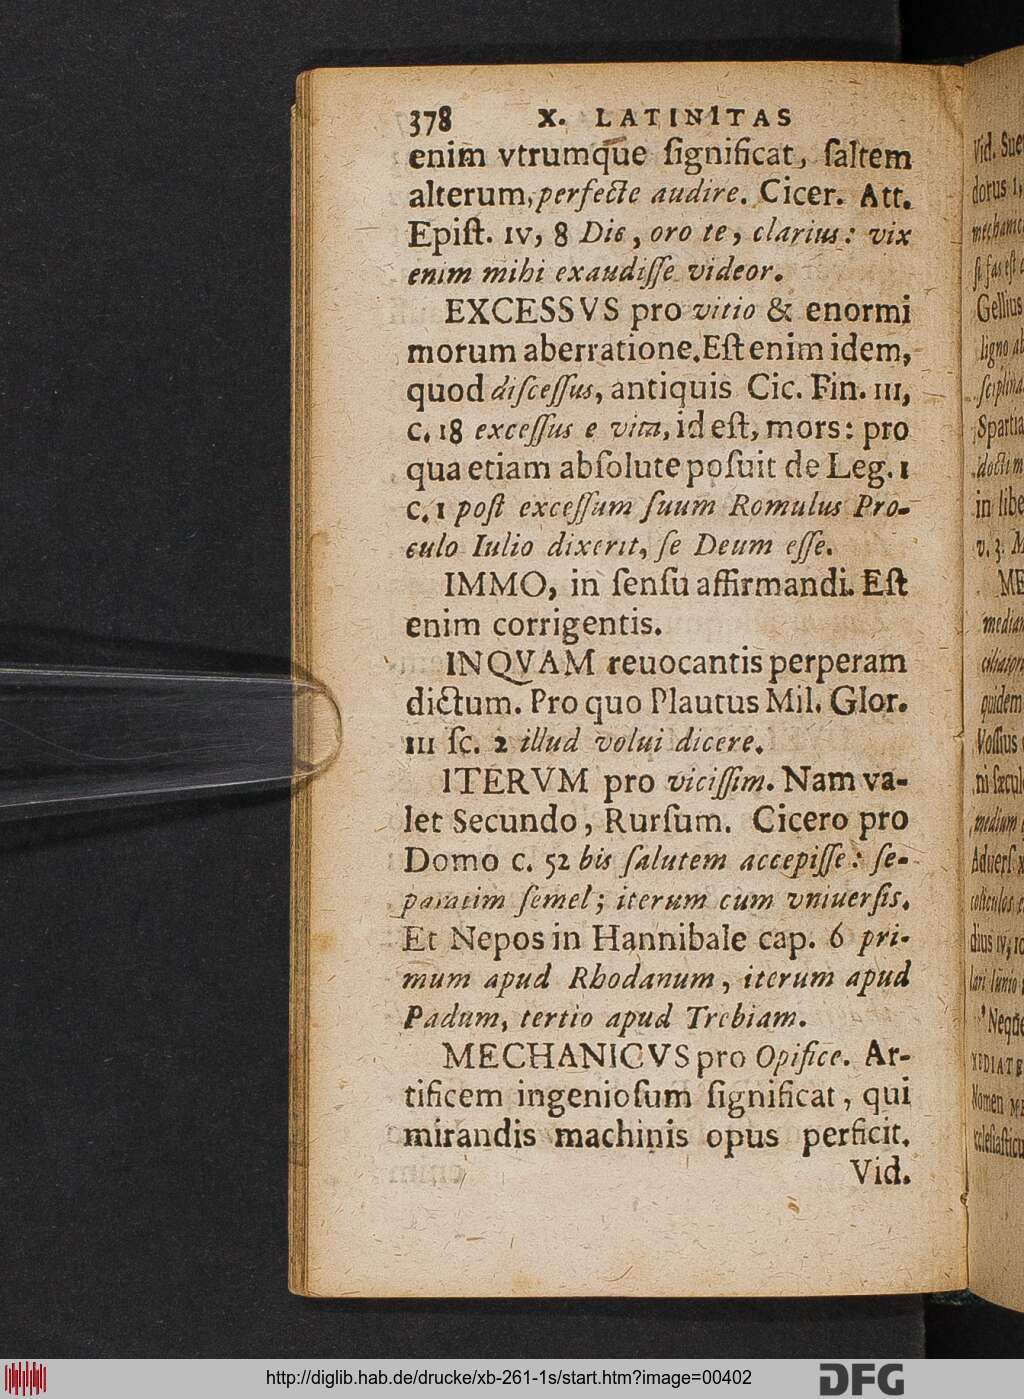 378 X. LATINITAS
enim vtrumque ſignificat, ſaltem
alterum, perfecte audire. Cicer. Att.
Epiſt. IV, 8 Dic, oro te, clarius: vix
enim mihi exaudiſſe videor.
EXCESSVS pro vitio & enormi
morum aberratione. Eſt enim idem,
quod diſceſſus, antiquis Cic. Fin. III,
c. 18 exceſſus e vita, id eſt, mors: pro
qua etiam abſolute poſuit de Leg. I
c. 1 poſt exceſſum ſuum Romulus Pro-
culo Iulio dixerit, ſe Deum eſſe.
IMMO, in ſenſu affirmandi. Eſt
enim corrigentis.
INQVAM reuocantis perperam
dictum. Pro quo Plautus Mil. Glor.
III ſc. 2 illud volui dicere.
ITERVM pro viciſſim. Nam va-
let Secundo, Rurſum. Cicero pro
Domo c. 52 bis ſalutem accepiſſe: ſe-
paratim ſemel; iterum cum vniuerſis.
Et Nepos in Hannibale cap. 6 pri-
mum apud Rhodanum, iterum apud
Padum, tertio apud Trebiam.
MECHANICVS pro Opifice. Ar-
tificem ingenioſum ſignificat, qui
mirandis machinis opus perficit.
Vid.
Vid. Sue
dorus 1,
mechanic
ſi fas eſt
Gellius
ligno
Spartia
in libe
v. 3.
ME
quidem
Voſſius
medium
Aduerſ
dius IV, 10
Neque
Nomen
http://diglib.hab.de/drucke/xb-261-1s/start.htm?image=00402
DFG